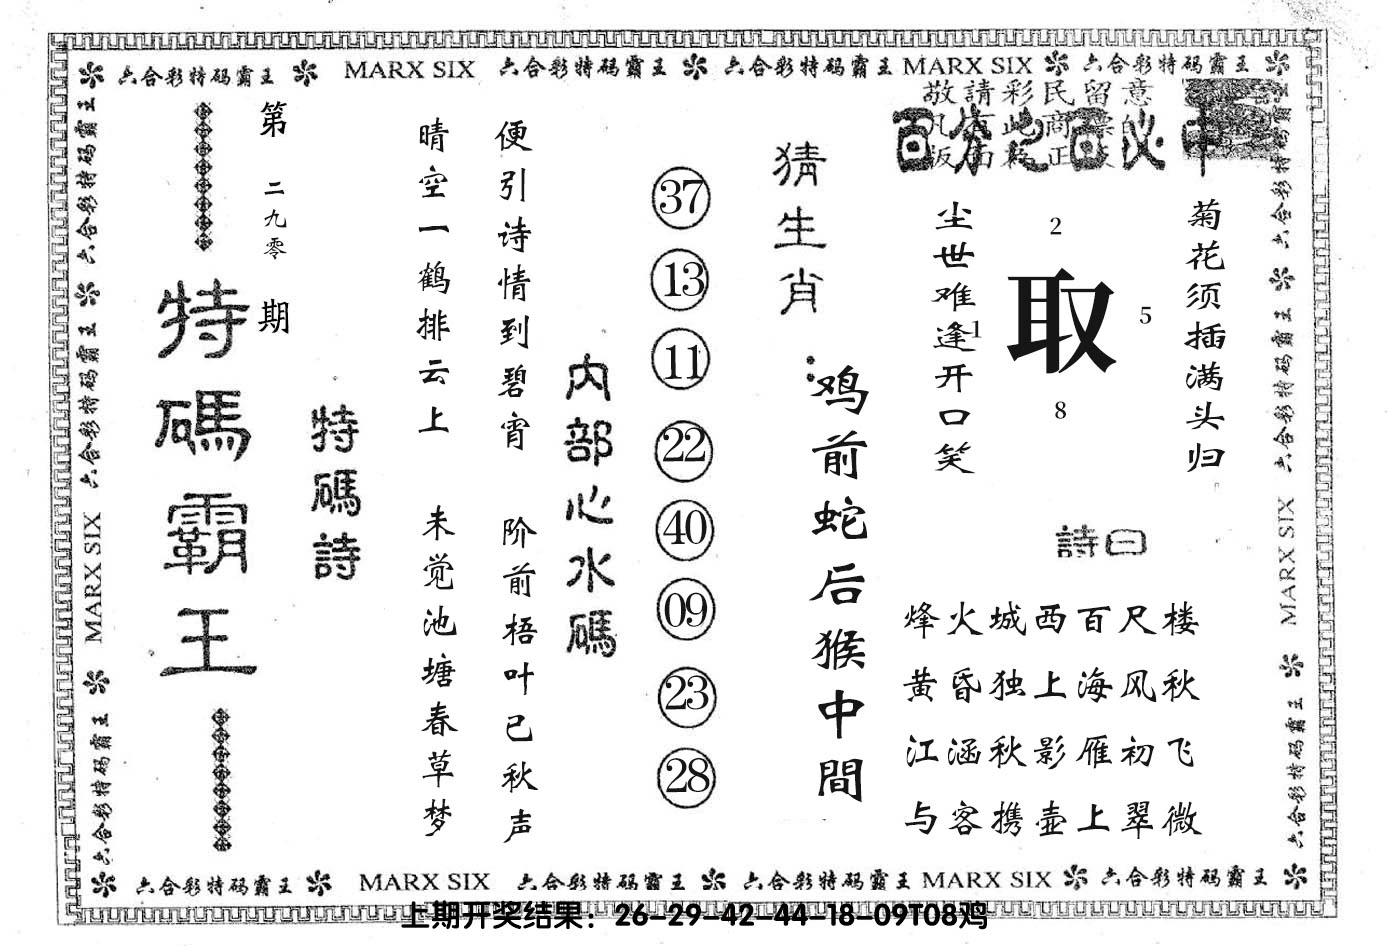 六合彩特码霸王 MARX SIX 六合彩特码霸王 六合彩特码霸王 MARX SIX 六合彩特码霸王
敬請彩民留意
百分之百必中
菊花须插满头归
尘世难逢开口笑
取
2
1
5
8
詩曰
烽火城西百尺楼
黄昏独上海风秋
江涵秋影雁初飞
与客携壶上翠微
猜生肖：
鸡前蛇后猴中間
37
13
11
22
40
09
23
28
内部心水碼
便引诗情到碧宵 阶前梧叶已秋声
晴空一鹤排云上 未觉池塘春草梦
特碼詩
第二九零期
特碼霸王
六合彩特码霸王 六合彩特码霸王 MARX SIX 六合彩特码霸王
六合彩特码霸王 六合彩特码霸王 MARX SIX 六合彩特码霸王
六合彩特码霸王 MARX SIX 六合彩特码霸王 六合彩特码霸王 MARX SIX 六合彩特码霸王
上期开奖结果：26-29-42-44-18-09T08鸡